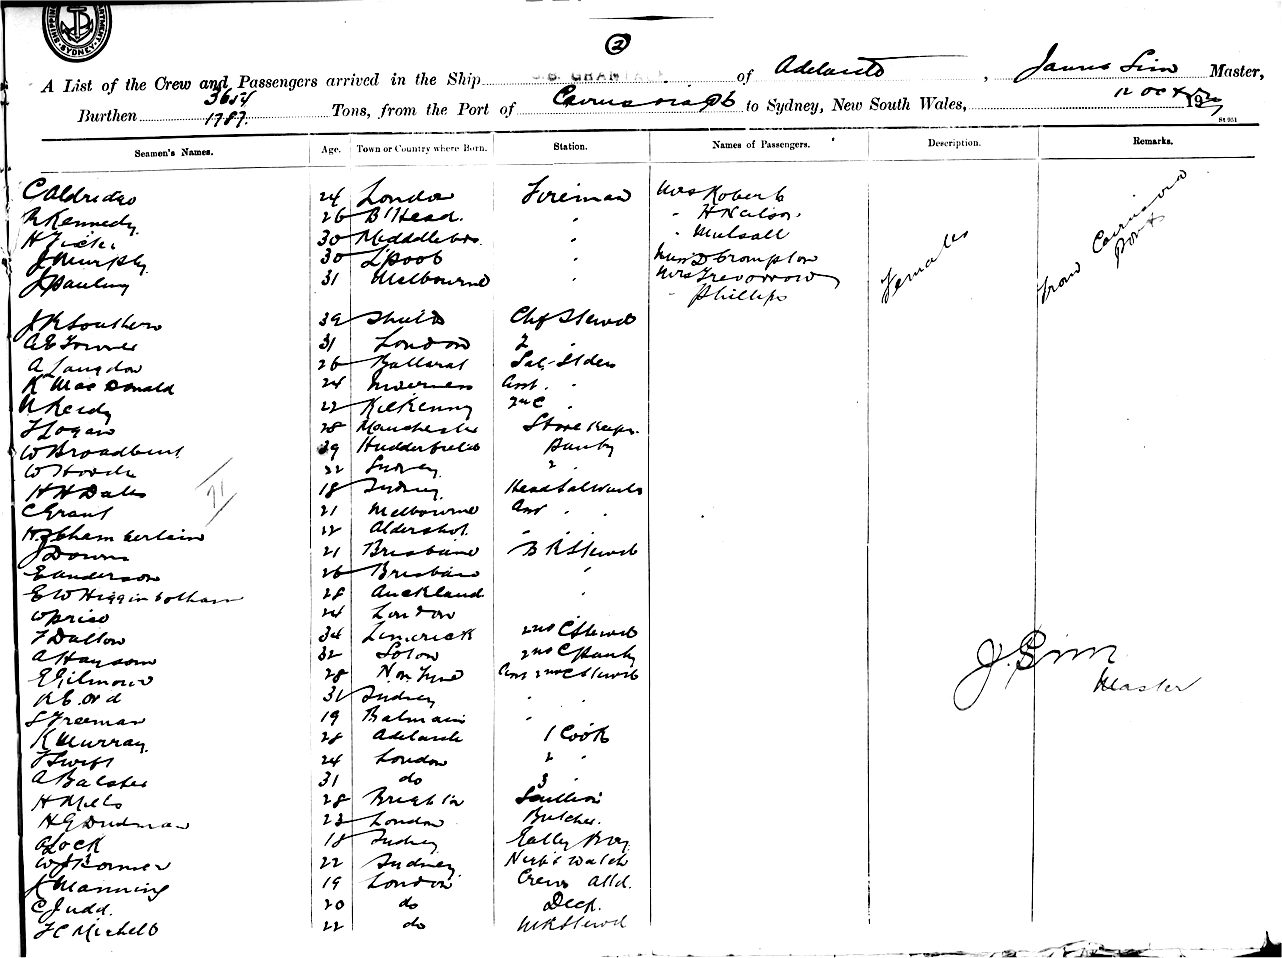 SHIPPING DEPARTMENT SYDNEY
2
A List of the Crew and Passengers arrived in the Ship S.S. GRANTALA of Adelaide, James Sim Master,
Burthen 3654 1787 Tons, from the Port of Cairns to Sydney, New South Wales, 12 Oct 19
St 951
Seamen's Names. Age. Town or Country where Born. Station. Names of Passengers. Description. Remarks.
C Aldridge 24 London Fireman Mrs Roberts
Kennedy 26 B'Head " " H Nelson
H 30 Middlebro " "
J Murphy 30 L'pool " D Crompton
J Pauling 31 Melbourne " Mrs Trevorrow
Phillips
Females
From Cairns
J R Southern 39 Shields Chf Stewd
A E 31 London 2 "
A Langdon 26 Ballarat
K MacDonald 24 Inverness Asst "
Reidy 22 Kilkenny 2nd C "
T Logan 28 Manchester Store Keepr
W Broadbent 39 Hudderfield Pantry
W 22 Surrey 2
H H Dales 18 Sydney Head
C Grant 21 Melbourne Asst " "
Chamberlain 22 Aldershot " "
J Downs 21 Brisbane B R Stewd
E Anderson 26 Brisbane "
E W Higginbotham 28 Auckland "
W Price 24 London
F Dalton 34 Limerick 2nd C Stewd
A Haysom 32 2nd C Pantry
E Gilmour 28 Asst 2nd C Stewd
R C Ord 31 Sydney " "
S Freeman 19 Balmain " "
K Murray 28 Adelaide 1 Cook
F Swift 24 London 2 "
A 31 do 3 "
H Mills 28 Brighton Scullion
H G Dudman 23 London Butcher
A Lock 18 Sydney Galley Boy
W J 22 Sydney Night Watch
J Manning 19 London Crews Attd.
C Judd 20 do Deck
F C Michell 22 do Stewd
J. Sim
Master